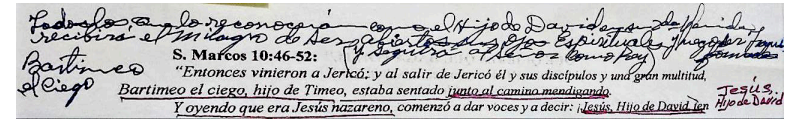 Todo el que lo reconozca como el Hijo de David en su vida
recibirá el Milagro de Ser abiertos sus ojos Espirituales
y seguirá al Señor como hoy
Bartimeo
el Ciego
S. Marcos 10:46-52:
"Entonces vinieron a Jericó; y al salir de Jericó él y sus discípulos y una gran multitud,
Bartimeo el ciego, hijo de Timeo, estaba sentado junto al camino mendigando.
Y oyendo que era Jesús nazareno, comenzó a dar voces y a decir: ¡Jesús, Hijo de David, ten
Jesús,
Hijo de David